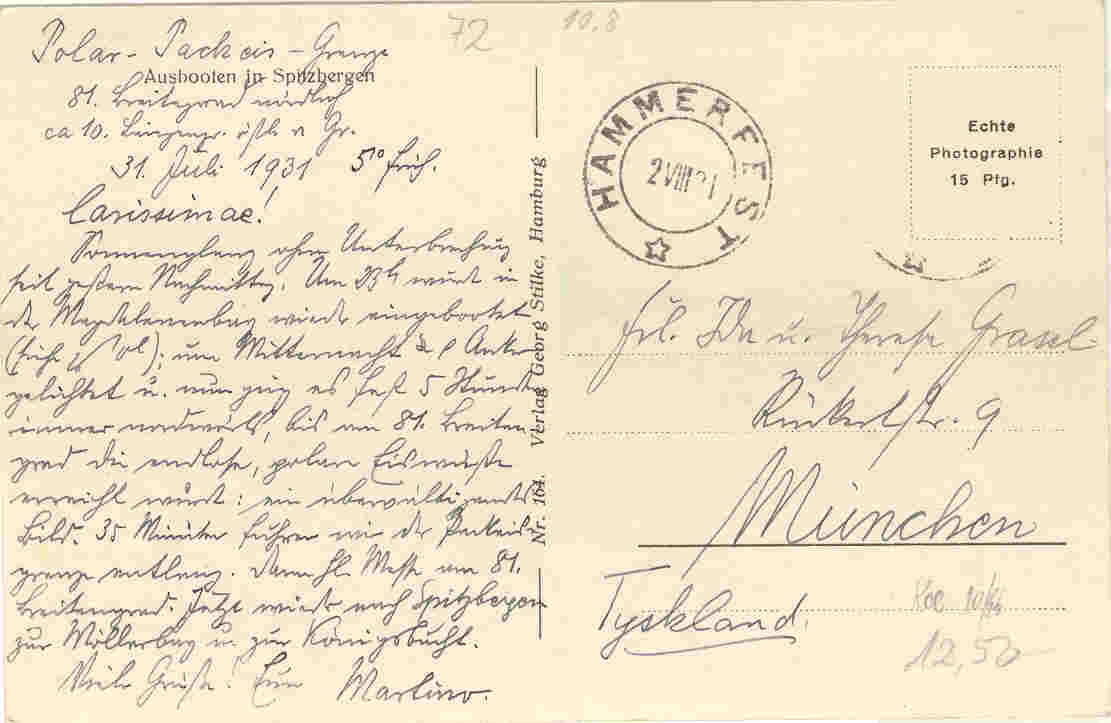 72
10.8
Polar-Packeis-Grenze
Ausbooten in Spitzbergen
81. Breitegrad nördlich
ca 10. Längengr. östl. v Gr.
31. Juli 1931 5¹⁰ früh.
Carissimae!
Sonnenglanz ohne Unterbrechung
seit gestern Nachmittag. Um 23h wurde in
der Magdalenenbay wieder eingebootet
(siehe); um Mitternacht Anker
gelichtet u. nun ging es fast 5 Stunden
immer nordwärts, bis am 81. Breiten-
grad die endlose, polare Eiswüste
erreicht wurde: ein überwältigendes
Bild. 35 Minuten fuhren wir der Packeis-
grenze entlang. Dann hl. Messe am 81.
Breitengrad. Jetzt wieder nach Spitzbergen
zur Möllerbay u. zur Königsbucht.
Viele Grüße! Euer Martino.
Nr. 164. Verlag Georg Stilke, Hamburg
HAMMERFEST
2 VIII 31
Echte
Photographie
15 Pfg.
Frl. Ida u. Therese Grasel
Rückertstr. 9
München
Tyskland.
12,50